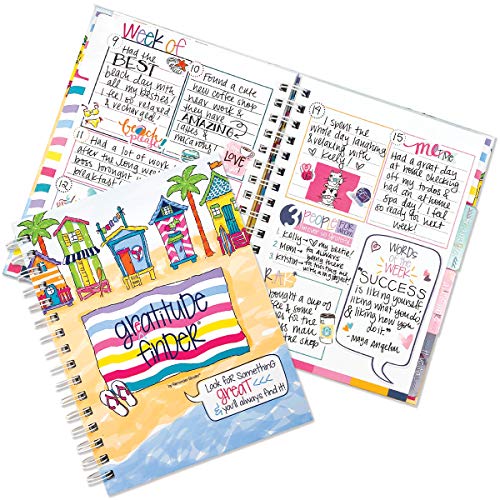 Week of
9 Had the
BEST
beach day with
all my besties!
I feel so relaxed
& recharged.
beach
please!
10 Found a cute
new coffee shop
near work &
they have
AMAZING
lattes &
macarons!
LOVE
11 Had a lot of work
after the long week
boss brought
breakfast
12
14 I spent the
whole day laughing
& relaxing with
Keely!
15 me time
Had a great day
at home checking
off my to-dos &
had an at home
Spa day! I feel
so ready for next
week!
3 PEOPLE
1. Kelly my bestie!
2. Mom
always
being there
3. Kristen
bought a cup
WORDS
OF THE
WEEK
"SUCCESS
is liking yourself,
liking what you do
& liking how you
do it."
-Maya Angelou
gratitude
finder
Look for something
great
& you'll always find it!